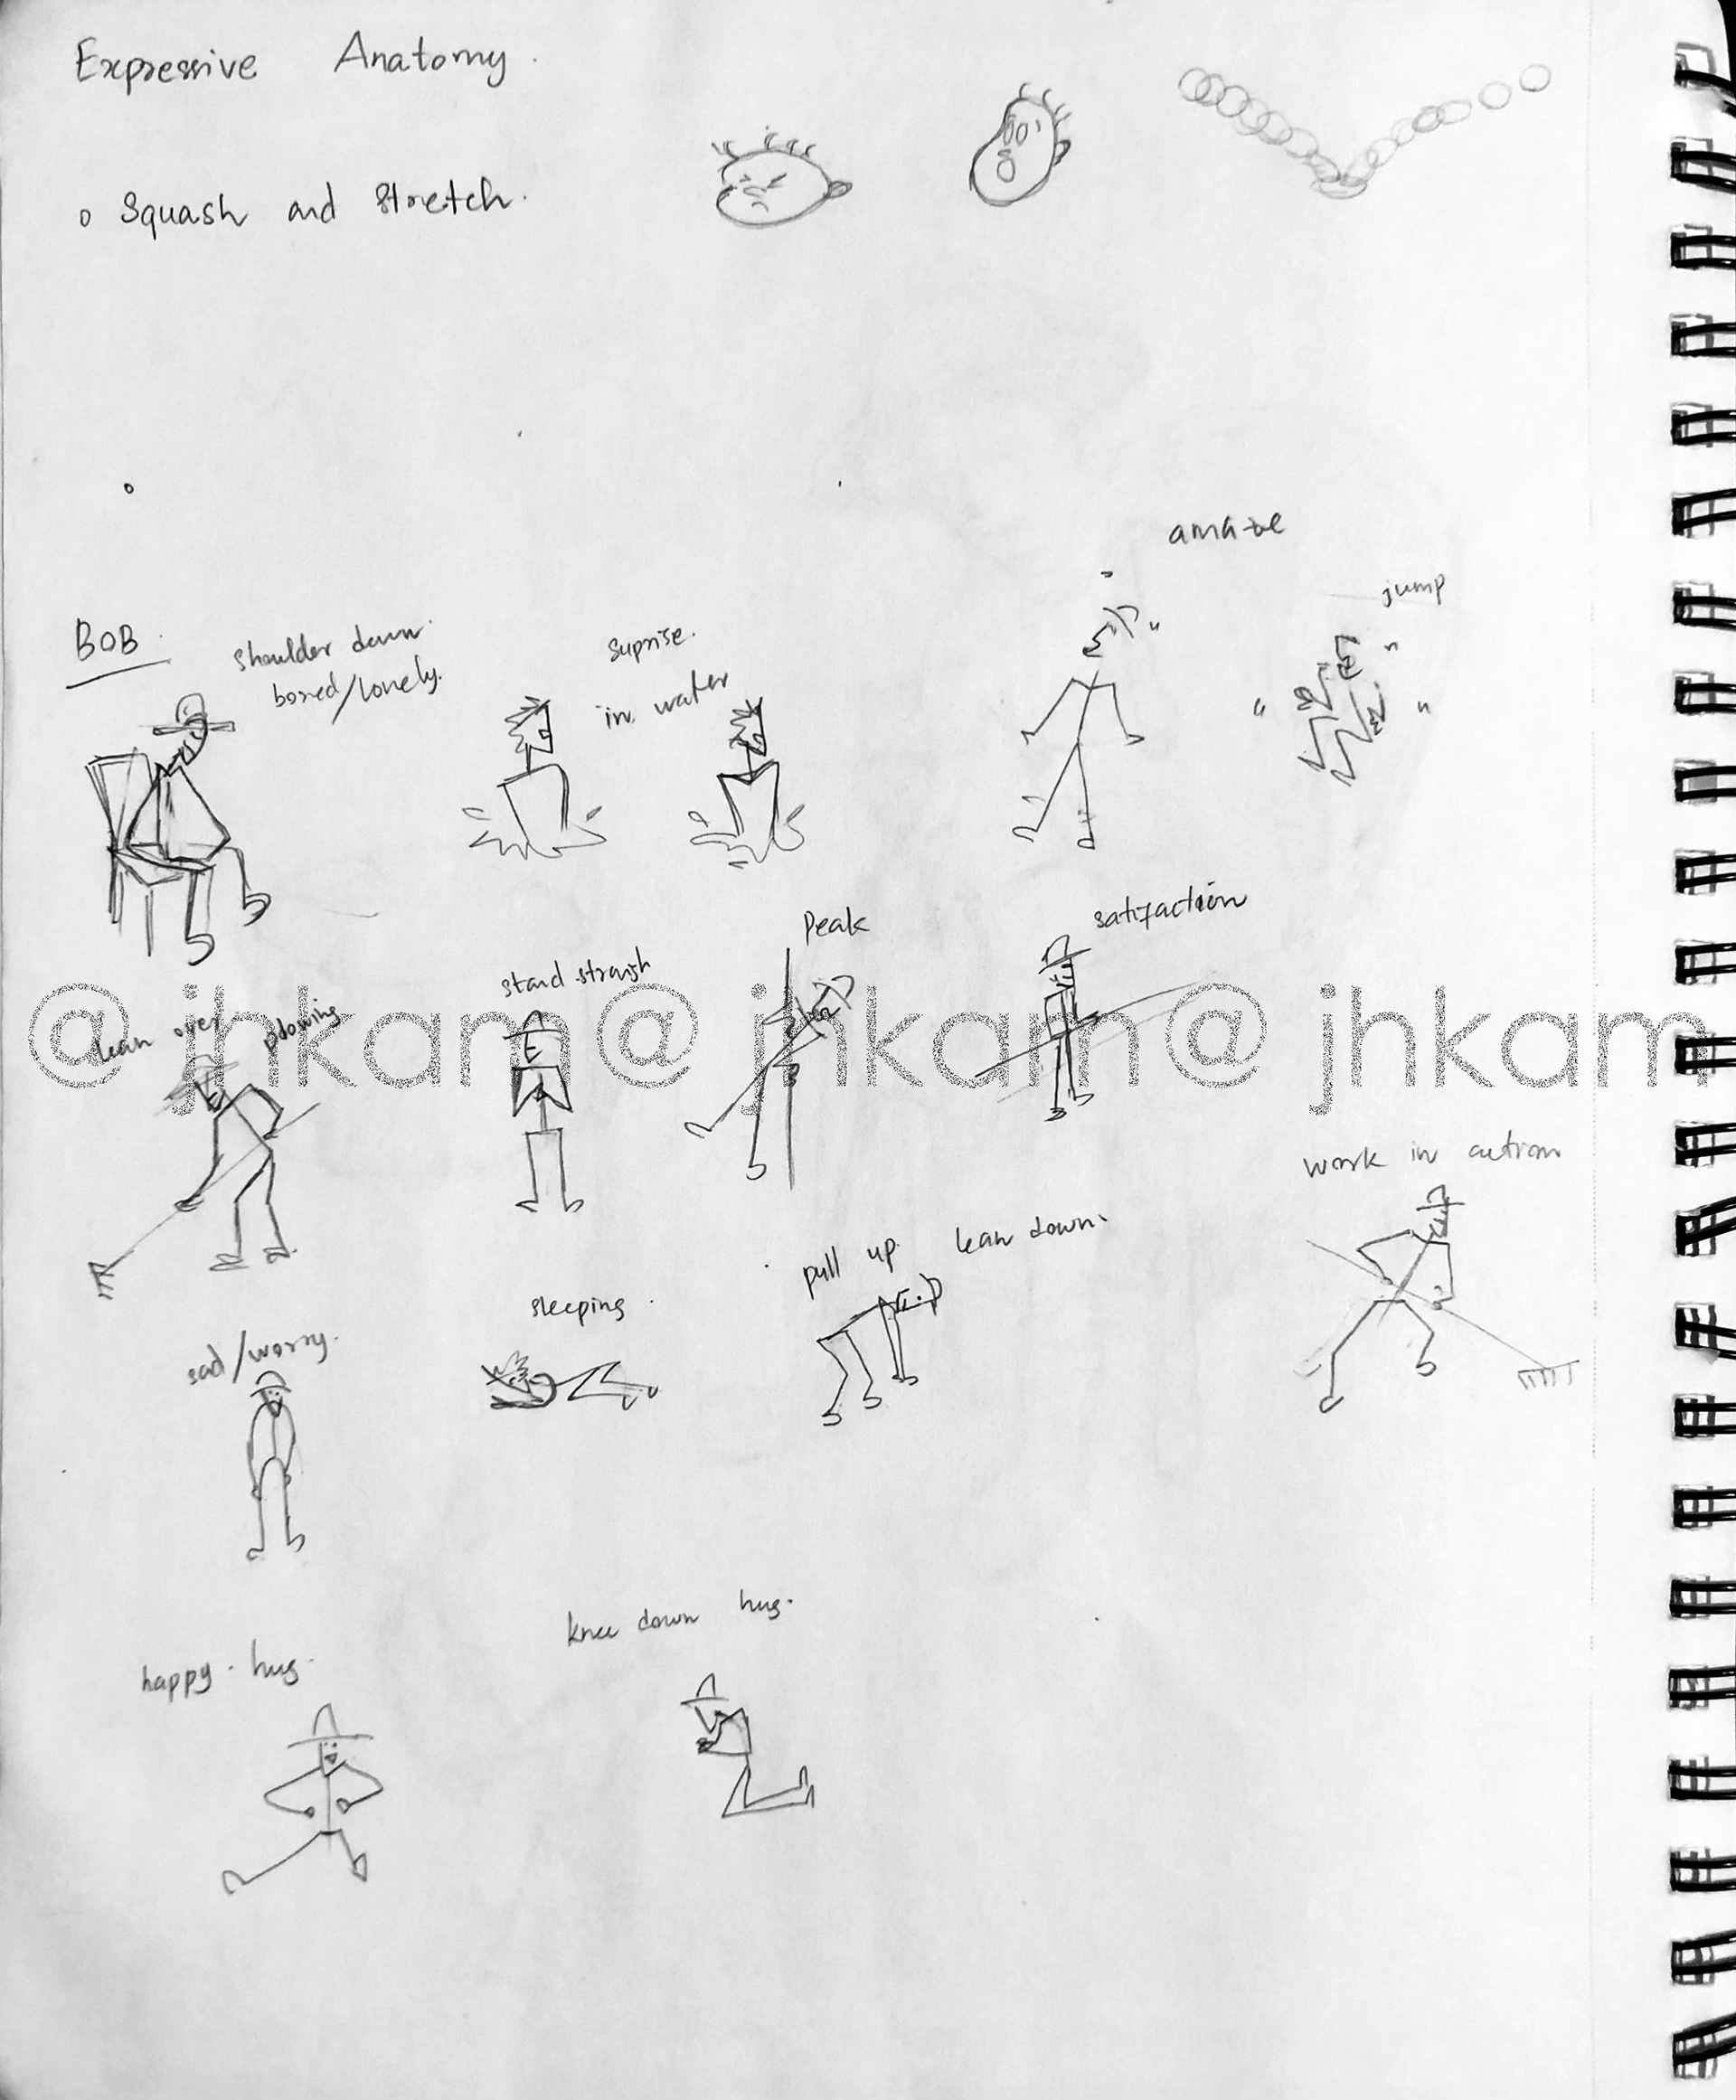 Expressive Anatomy.
o Squash and Stretch.
amaze
jump
BOB
shoulder down.
bored/lonely.
Suprise.
in water
Peak
satisfaction
stand straigh
lean over plowing
@jhkam@jhkam@jhkam
work in action
pull up. lean down.
sleeping.
sad/worry.
knee down hug.
happy. hug.